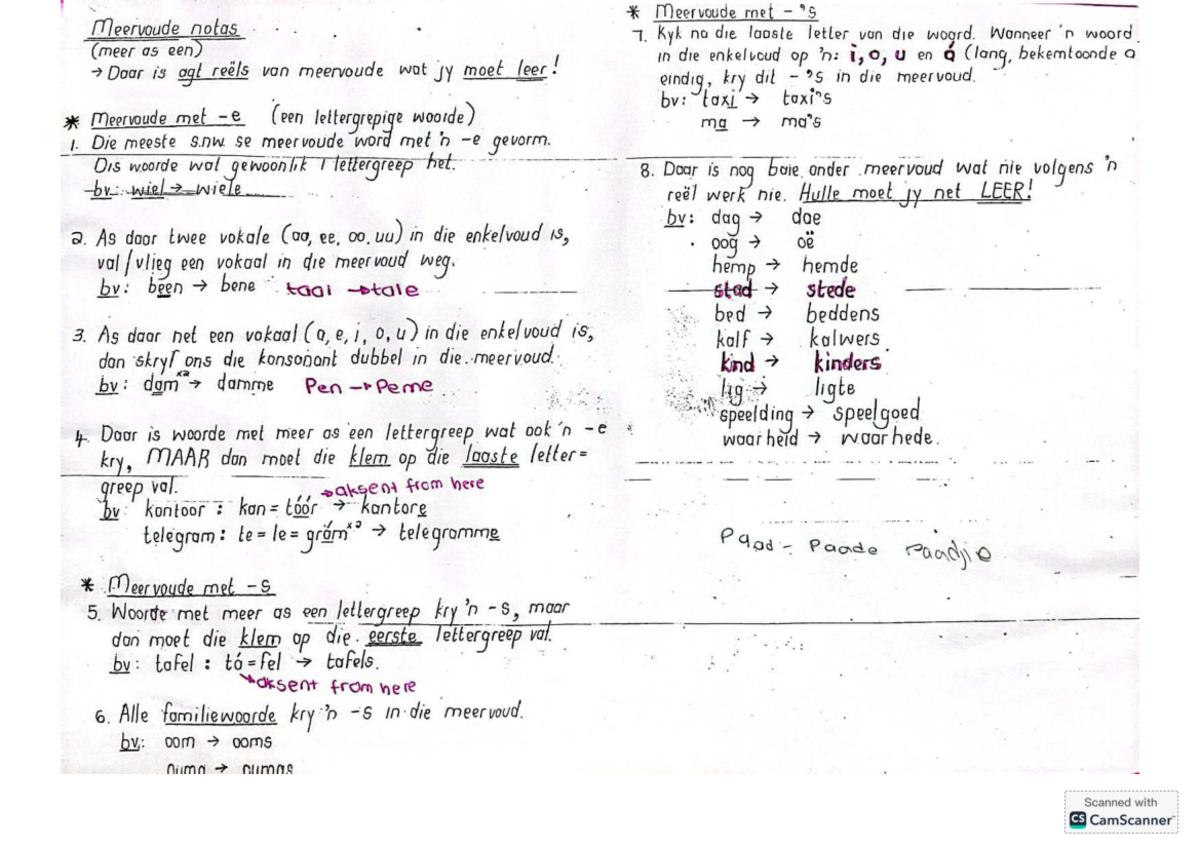 Meervoude notas
(meer as een)
→ Daar is agt reëls van meervoude wat jy moet leer!
* Meervoude met -e (een lettergrepige woorde)
1. Die meeste s.nw. se meervoude word met 'n -e gevorm.
Dis woorde wat gewoonlik 1 lettergreep het.
bv: wiel → wiele
2. As daar twee vokale (aa, ee, oo, uu) in die enkelvoud is,
val/vlieg een vokaal in die meervoud weg.
bv: been → bene taal → tale
3. As daar net een vokaal (a, e, i, o, u) in die enkelvoud is,
dan skryf ons die konsonant dubbel in die meervoud.
bv: dam x2 → damme Pen → Penne
4. Daar is woorde met meer as een lettergreep wat ook 'n -e
kry, MAAR dan moet die klem op die laaste letter=
greep val.
→ aksent from here
bv: kantoor : kan = tóór → kantore
telegram : te = le = grám x2 → telegramme
* Meervoude met -s
5. Woorde met meer as een lettergreep kry 'n -s, maar
dan moet die klem op die eerste lettergreep val.
bv: tafel : tá = fel → tafels.
→ aksent from here
6. Alle familiewoorde kry 'n -s in die meervoud.
bv: oom → ooms
ouma → oumas
* Meervoude met -'s
7. Kyk na die laaste letter van die woord. Wanneer 'n woord
in die enkelvoud op 'n: i, o, u en á (lang, beklemtoonde a
eindig, kry dit -'s in die meervoud.
bv: taxi → taxi's
ma → ma's
8. Daar is nog baie ander meervoud wat nie volgens 'n
reël werk nie. Hulle moet jy net LEER!
bv: dag → dae
oog → oë
hemp → hemde
stad → stede
bed → beddens
kalf → kalwers
kind → kinders
lig → ligte
speelding → speelgoed
waarheid → waarhede.
Paad - Paade Paadjie
Scanned with
CS CamScanner